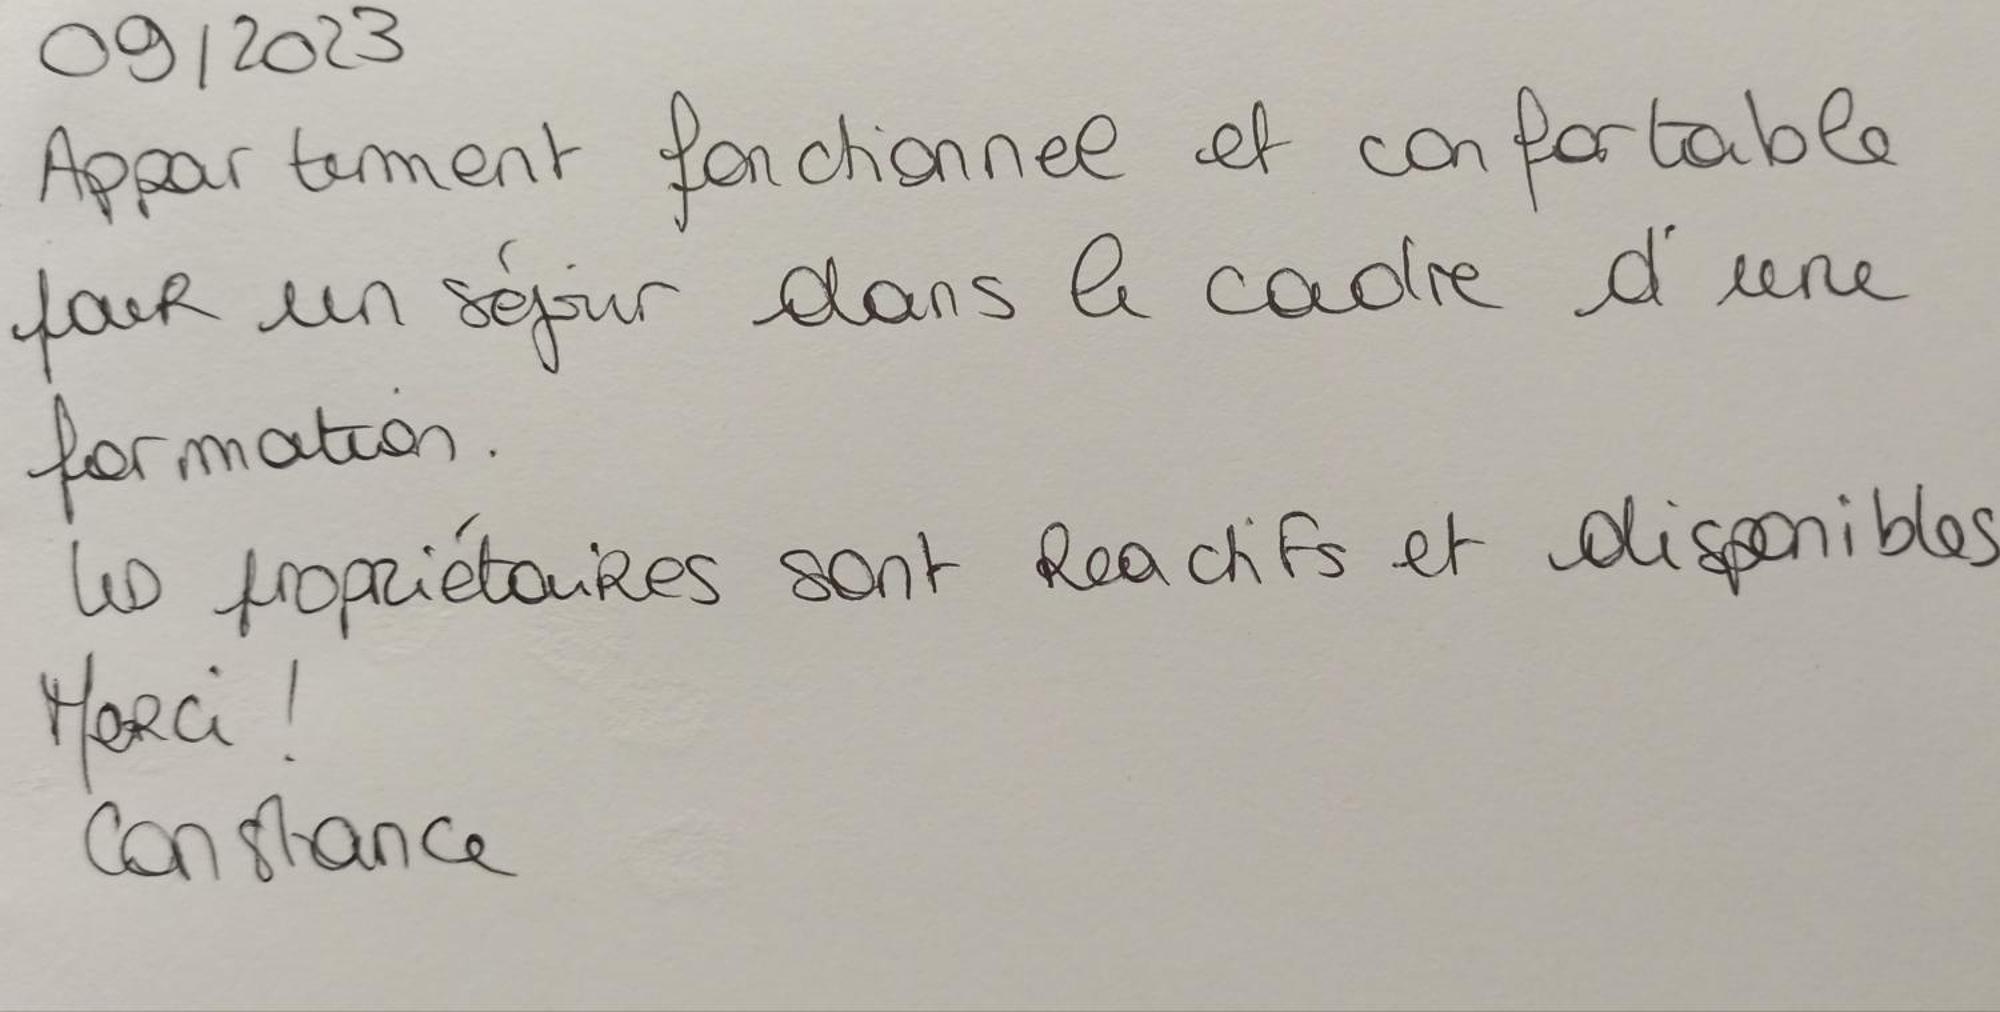 09/2023
Appartement fonctionnel et confortable
pour un séjour dans le cadre d'une
formation.
Les propriétaires sont Reactifs et disponibles
Merci !
Constance